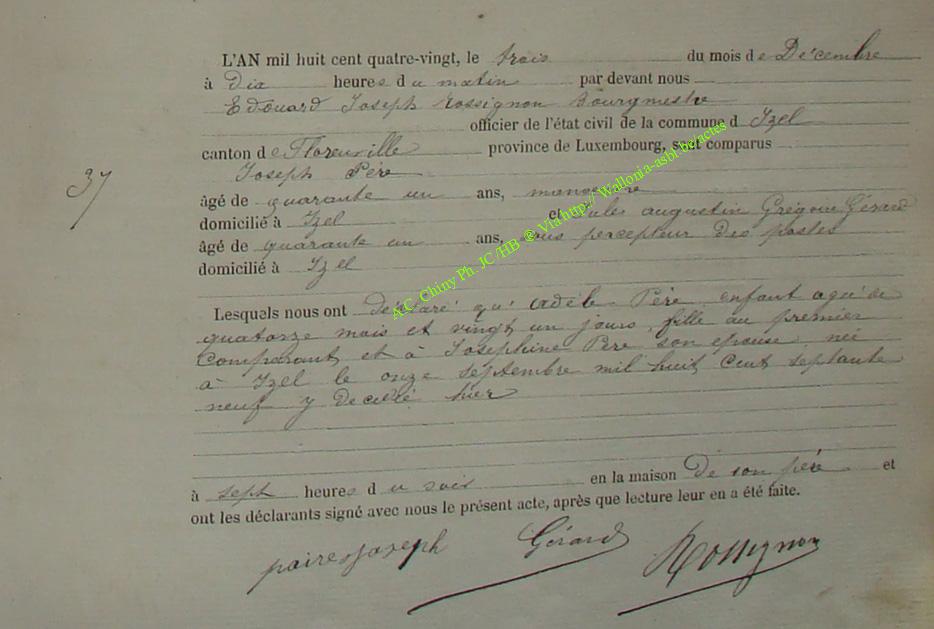 L'AN mil huit cent quatre-vingt, le trois du mois de Décembre
à dix heures du matin par devant nous
Edouard Joseph Rossignon Bourgmestre
officier de l'état civil de la commune d Izel
canton de Florenville province de Luxembourg, sont comparus
Joseph Père
37
âgé de quarante un ans,
domicilié à Izel et Jules augustin Grégoire Gérard
âgé de quarante un ans, sous percepteur des postes
domicilié à Izel
A.C. Chiny Ph. JC /HB ® Via http:// Wallonia-asbl-be/actes
Lesquels nous ont déclaré qu' adèle Père, enfant agée de
quatorze mois et vingt un jours, fille au premier
Comparant, et à Josephine Père son épouse, née
à Izel le onze septembre mil huit Cent septante
neuf y decédé hier
à sept heures du soir en la maison de son père et
ont les déclarants signé avec nous le présent acte, après que lecture leur en a été faite.
paire joseph Gérard Rossignon